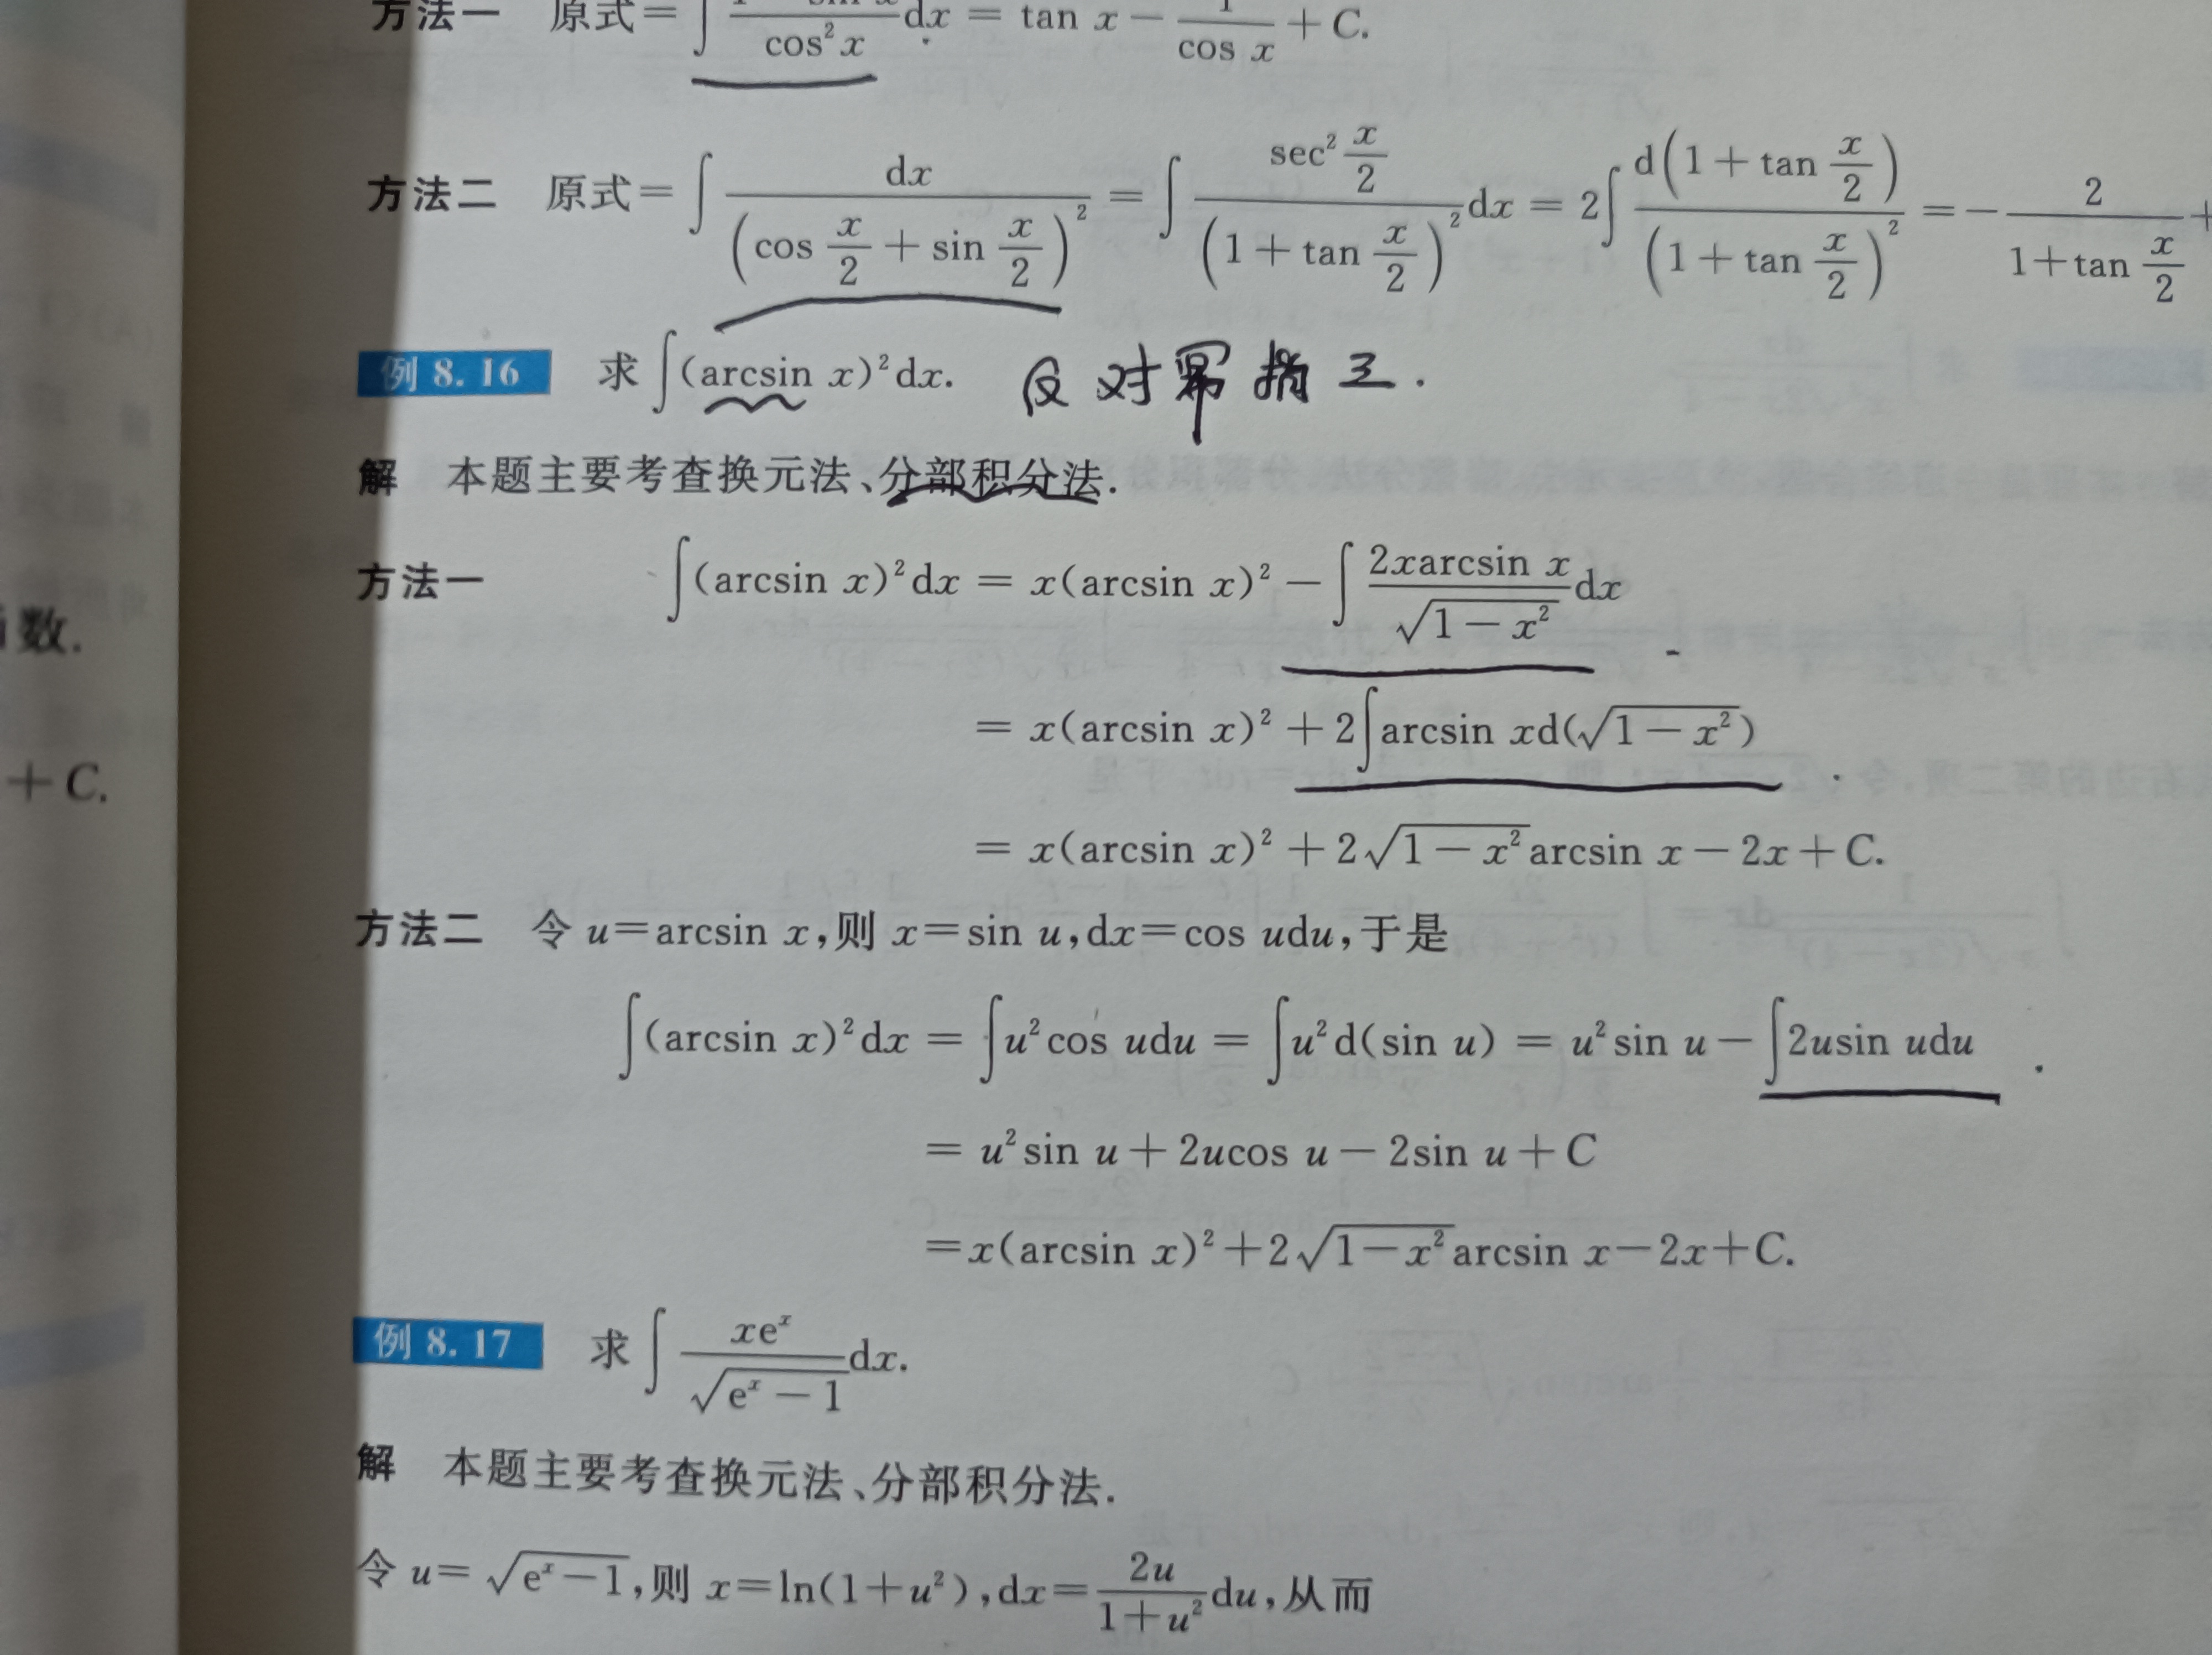 方法一 原式=∫ /cos²x dx = tan x − 1/cos x + C.
方法二 原式=∫ dx/(cos x/2 + sin x/2)² = ∫ sec² x/2/(1+tan x/2)² dx = 2∫ d(1+tan x/2)/(1+tan x/2)² = − 2/(1+tan x/2) +
例 8.16 求∫(arcsin x)²dx. 反对幂指三.
解 本题主要考查换元法、分部积分法.
方法一 ∫(arcsin x)²dx = x(arcsin x)² − ∫ 2xarcsin x/√(1−x²) dx
= x(arcsin x)² + 2∫arcsin xd(√(1−x²))
= x(arcsin x)² + 2√(1−x²)arcsin x − 2x + C.
方法二 令 u=arcsin x,则 x=sin u,dx=cos udu,于是
∫(arcsin x)²dx = ∫u²cos udu = ∫u²d(sin u) = u²sin u − ∫2usin udu
= u²sin u + 2ucos u − 2sin u + C
=x(arcsin x)²+2√(1−x²)arcsin x−2x+C.
例 8.17 求∫ xeˣ/√(eˣ−1) dx.
解 本题主要考查换元法、分部积分法.
令 u=√(eˣ−1),则 x=ln(1+u²),dx=2u/(1+u²) du,从而
数.
+C.